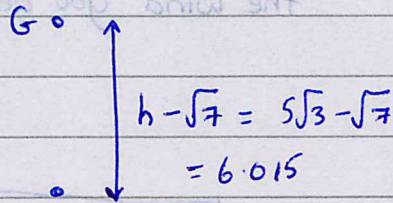 G
h - √7 = 5√3 - √7
= 6.015